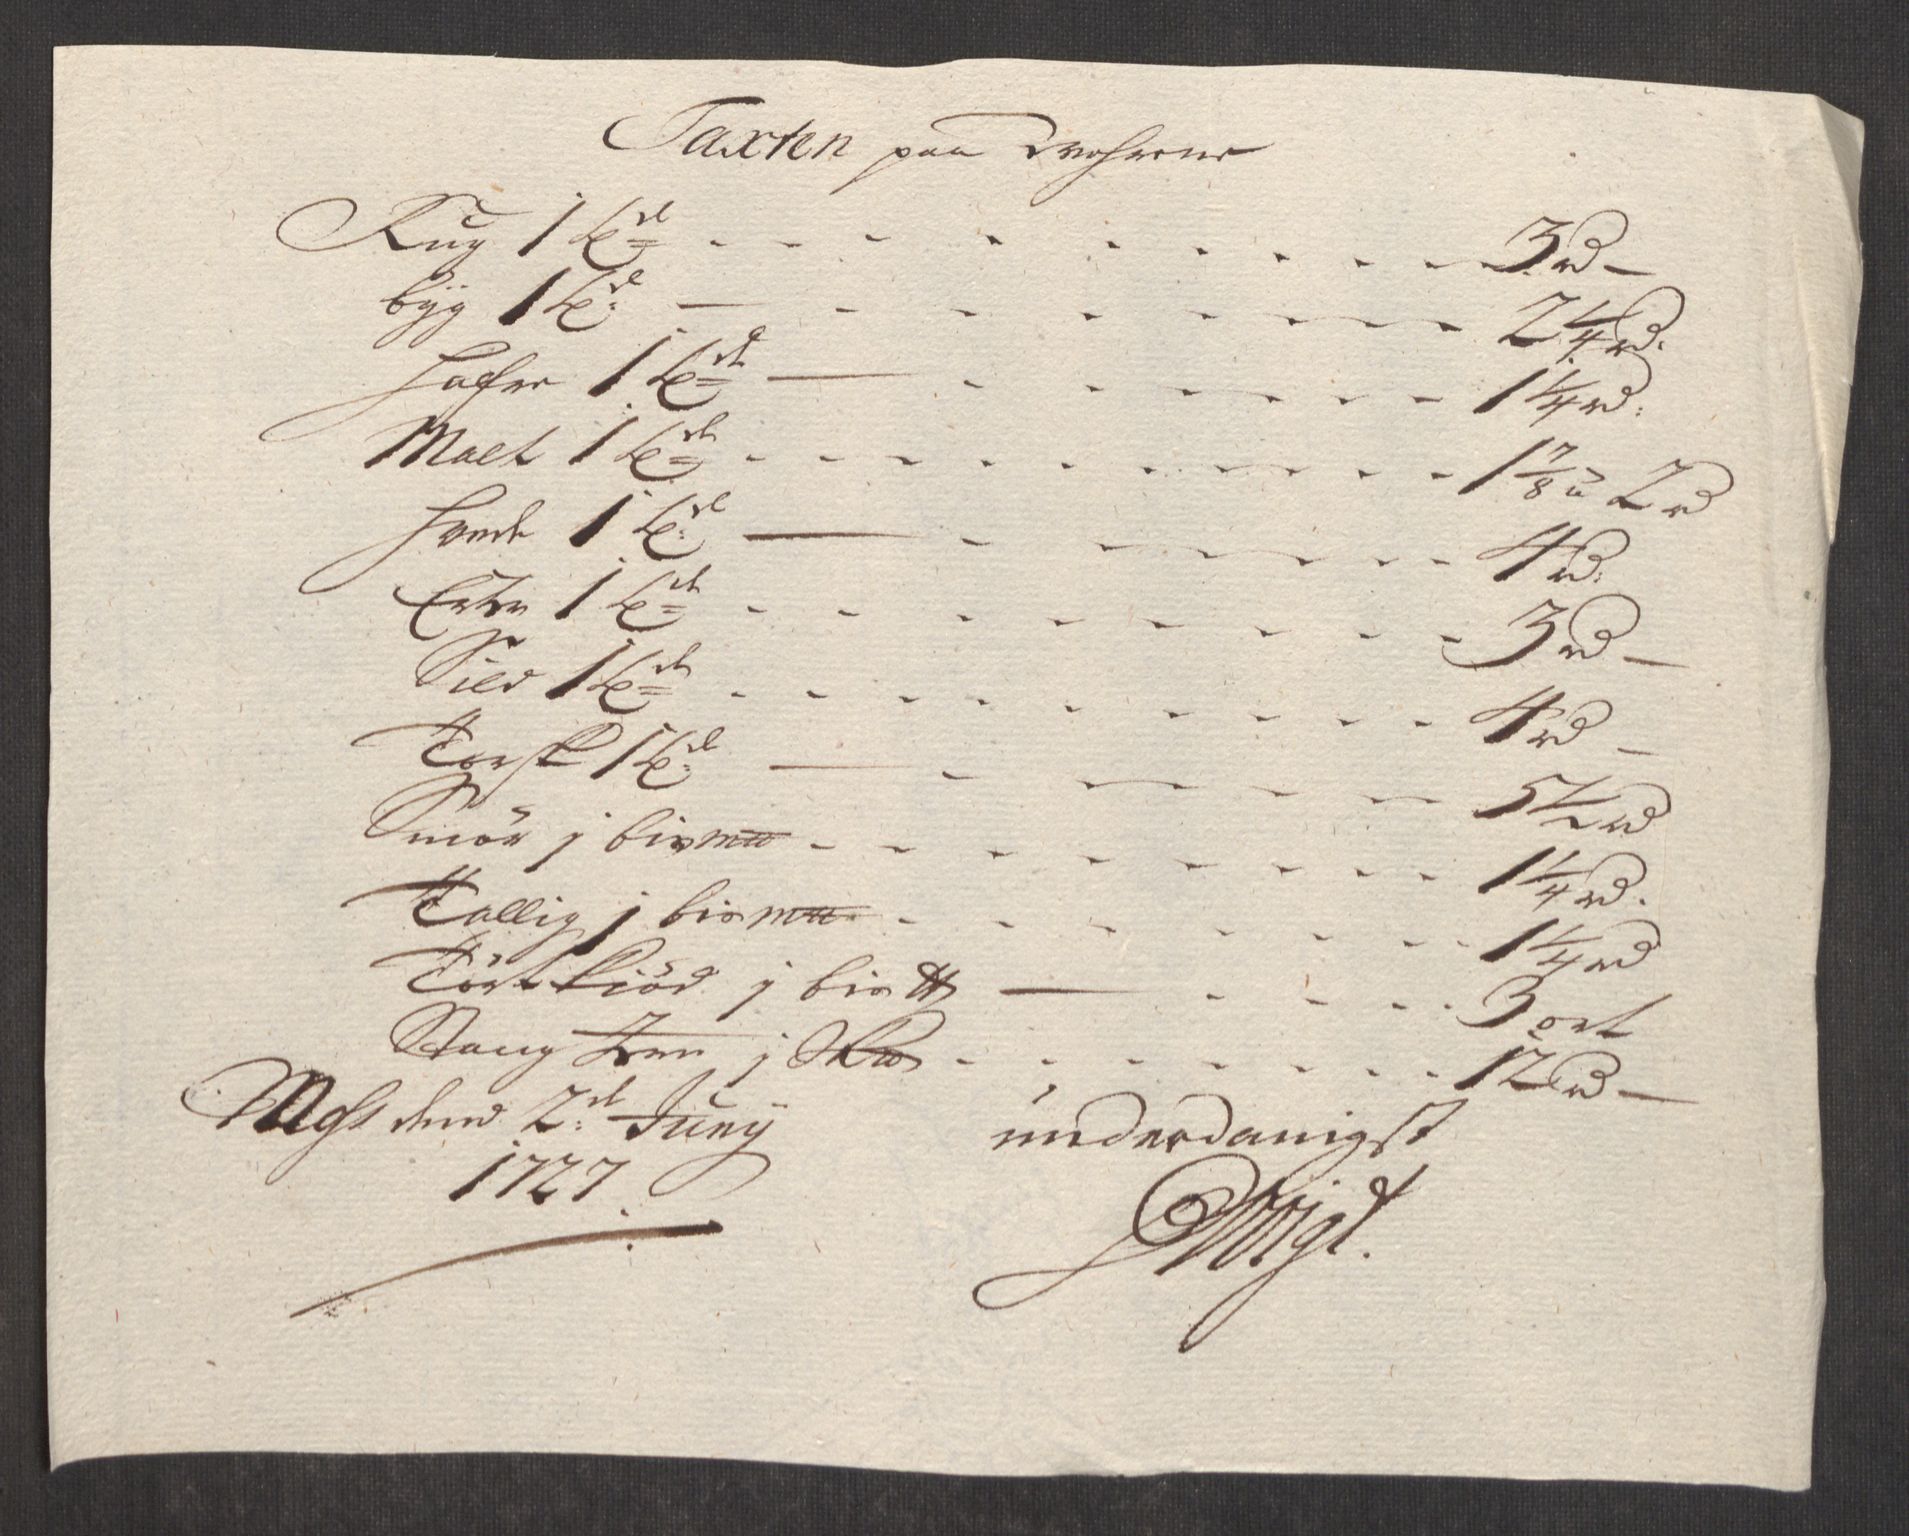 Taxten paa Wahrene
Rug 1 td 3 rd
byg 1 td 2 1/4 rd
Hafre 1 td 1 1/4 rd
Malt 1 td 1 7/8 a 2 rd
Hvede 1 td 4 rd
Erter 1 td 3 rd
Sild 1 td 4 rd
Torsk 1 td 5 1/2 rd
Smör j bismtt 1 1/4 rd
Tallig j bismtt 1 1/4 rd
Tört Kiöd j bis tt 3 ort
Stang Jern j 12 rd
dend 2d Juny
1727
underdanigst